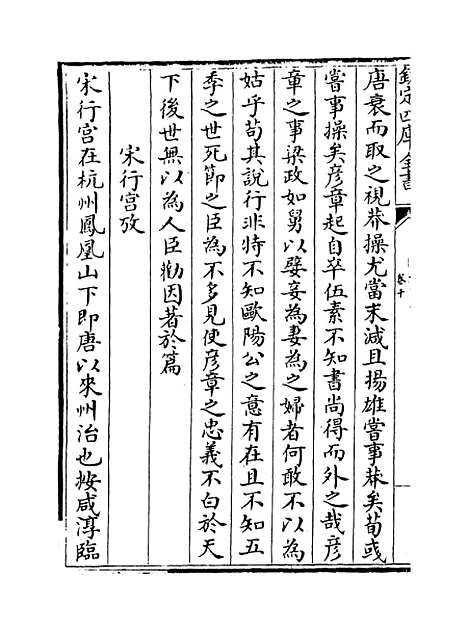 欽定四庫全書
卷十
唐衰而取之視莽操尤當末減且揚雄嘗事莽矣荀彧
嘗事操矣彥章起自卒伍素不知書尚得而外之哉彥
章之事梁政如舅以嬖妾為妻為之婦者何敢不以為
姑乎苟其說行非特不知歐陽公之意有在且不知五
季之世死節之臣為不多見使彥章之忠義不白於天
下後世無以為人臣勸因著於篇
宋行宫攷
宋行宫在杭州鳳凰山下即唐以來州治也按咸淳臨